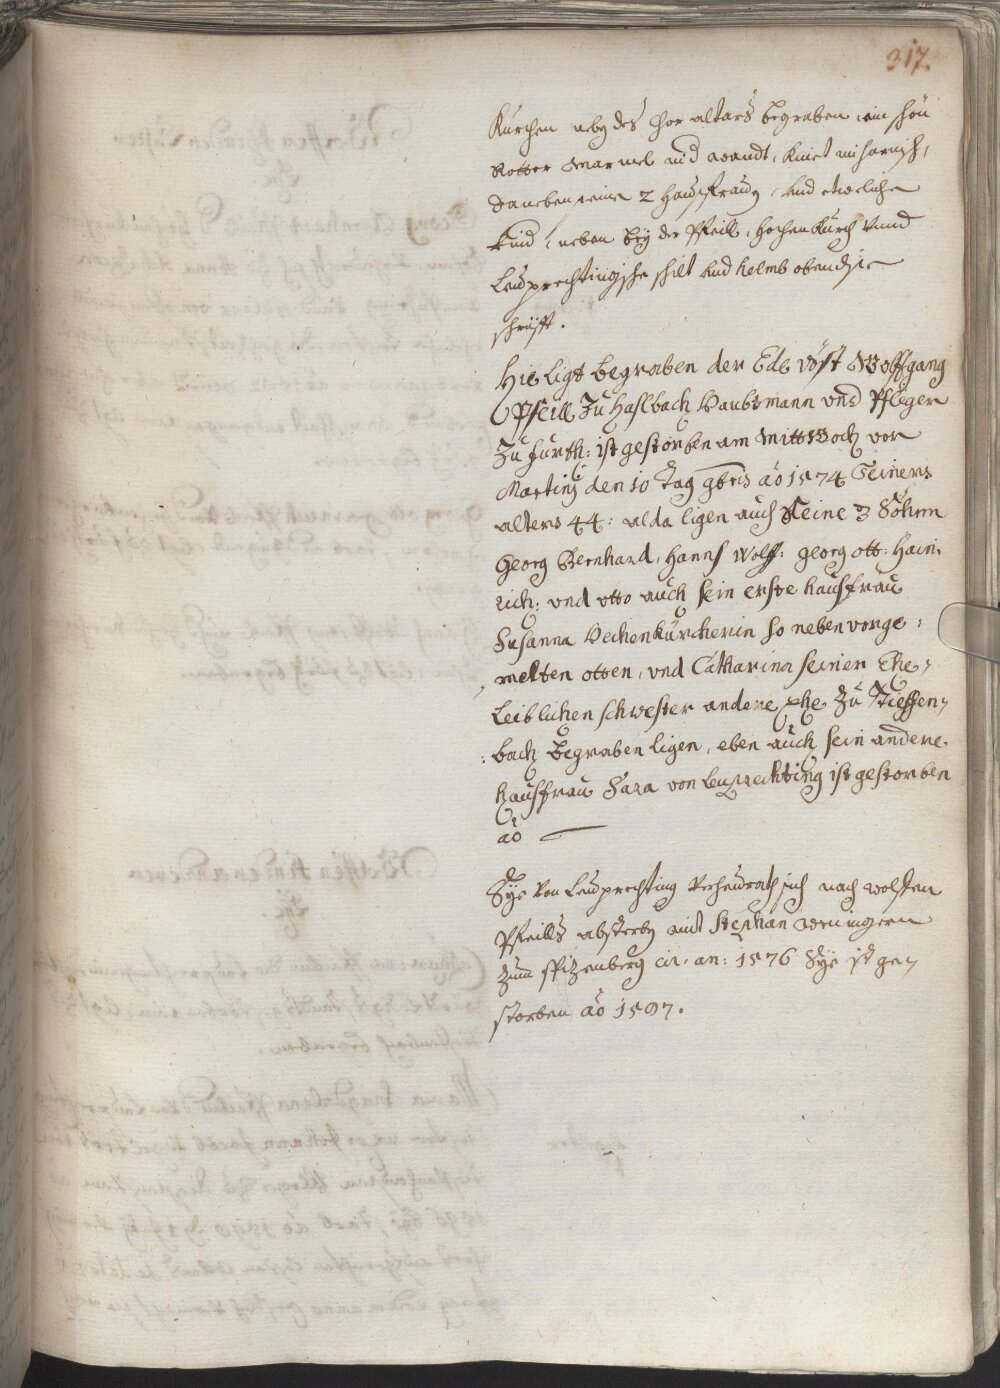 317.
Kürchen nebn des Chor altars begraben, ein schön
Rotter Marmel in d wandt, kniet in harnisch,
daneben seine 2 hausfraun, und etweliche
kind, neben bey der Pfeill, hechenkürch Unnd
Leuprechtingische schilt und helmb oben dise
schrüfft.
Hie Ligt begraben der Edl vöst Wolffgang
Pfeill Zu Haslbach Haubtmann und Pfleger
Zu Furth: ist gestorben am Mittwoch vor
Martinj den 10 Tag 9bris ao 1574 Seiners
alters 44: alda ligen auch Seine 3 Söhnn
Georg Bernhard, Hanns Wolff: georg ott: Hain,
rich: und otto auch sein erste hausfrau
Susanna Hechenkürcherin so neben vorge,
melten otten, und Catharina seiner Ehe,
Leiblichen schwester andere ehe Zu Tieffen,
bach Begraben ligen, eben auch sein andere
hausfrau Sara von Leuprechting ist gestorben
ao —
Sÿe Von Leuprechting Verheurath sich nach wolffen
Pfeills absterbn mit Stephan weningern
zum spizenberg cir: an: 1576 Sÿe ist ge,
storben ao 1597.